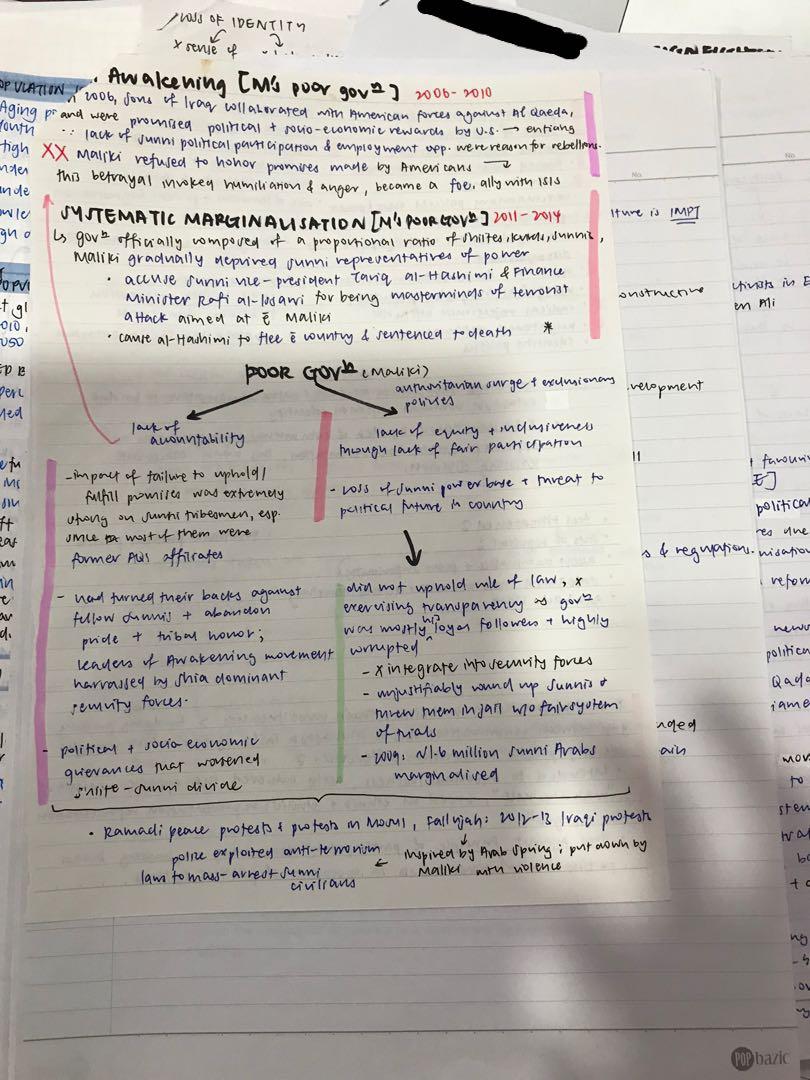 LOSS OF IDENTITY
x sense of
Awakening [M's poor govⁿ] 2006-2010
2006, sons of Iraq collaborated with American forces against Al Qaeda,
and were promised political + socio-economic rewards by U.S. → enticing
∵ lack of sunni political participation & employment opp. were reason for rebellions.
XX Maliki refused to honor promises made by Americans →
this betrayal invoked humiliation & anger, became a foe, ally with ISIS
SYSTEMATIC MARGINALISATION [M'S POOR GOVⁿ] 2011-2014
↳ govⁿ officially composed of a proportional ratio of shiites, kurds, sunnis,
Maliki gradually deprived sunni representatives of power
• accuse sunni vice-president Tariq al-Hashimi & Finance
Minister Rafi al-Issawi for being masterminds of terrorist
attack aimed at ē Maliki
• cause al-Hashimi to flee ē country & sentenced to death *
POOR GOVⁿ (Maliki)
authoritarian surge + exclusionary
policies
lack of
accountability
lack of equity + inclusiveness
through lack of fair participation
- loss of sunni power base + threat to
political future in country
- impact of failure to uphold/
fulfill promises was extremely
strong on sunni tribesmen, esp.
since most of them were
former AQI affiliates
- head turned their backs against
fellow sunnis + abandon
pride + tribal honor;
leaders of Awakening movement
harrassed by shia dominant
security forces.
- political + socio economic
grievances that worsened
shiite-sunni divide
did not uphold rule of law, x
exercising transparency as govⁿ
was mostly his loyal followers + highly
corrupted
- x integrate into security forces
- unjustifiably round up sunnis &
threw them in jail w/o fair system
of trials
- 2009: ~1.6 million sunni Arabs
marginalised
• Ramadi peace protests & protests in Mosul, Fallujah: 2012-13 Iraqi protests
police exploited anti-terrorism ← inspired by Arab Spring; put down by
laws to mass-arrest sunni Maliki with violence
civilians
No
No.
lture is IMPT
onstructive
velopment
s & regulations.
POP bazic